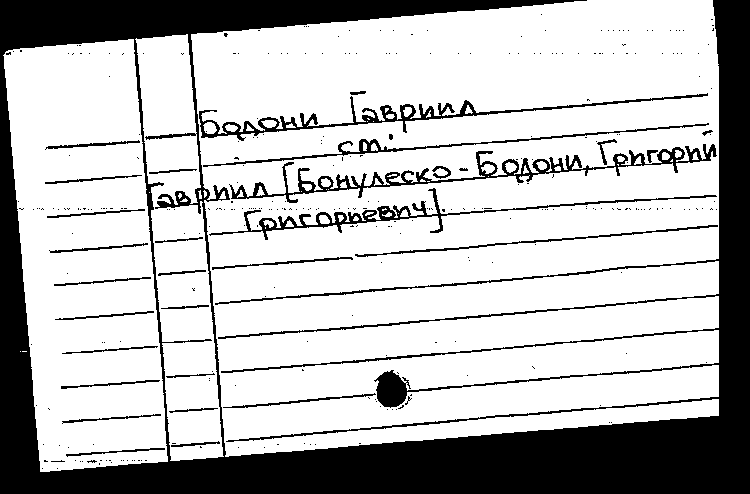 Бодони Гавриил
см.:
Гавриил [Бонулеско-Бодони, Григорий
Григорьевич].